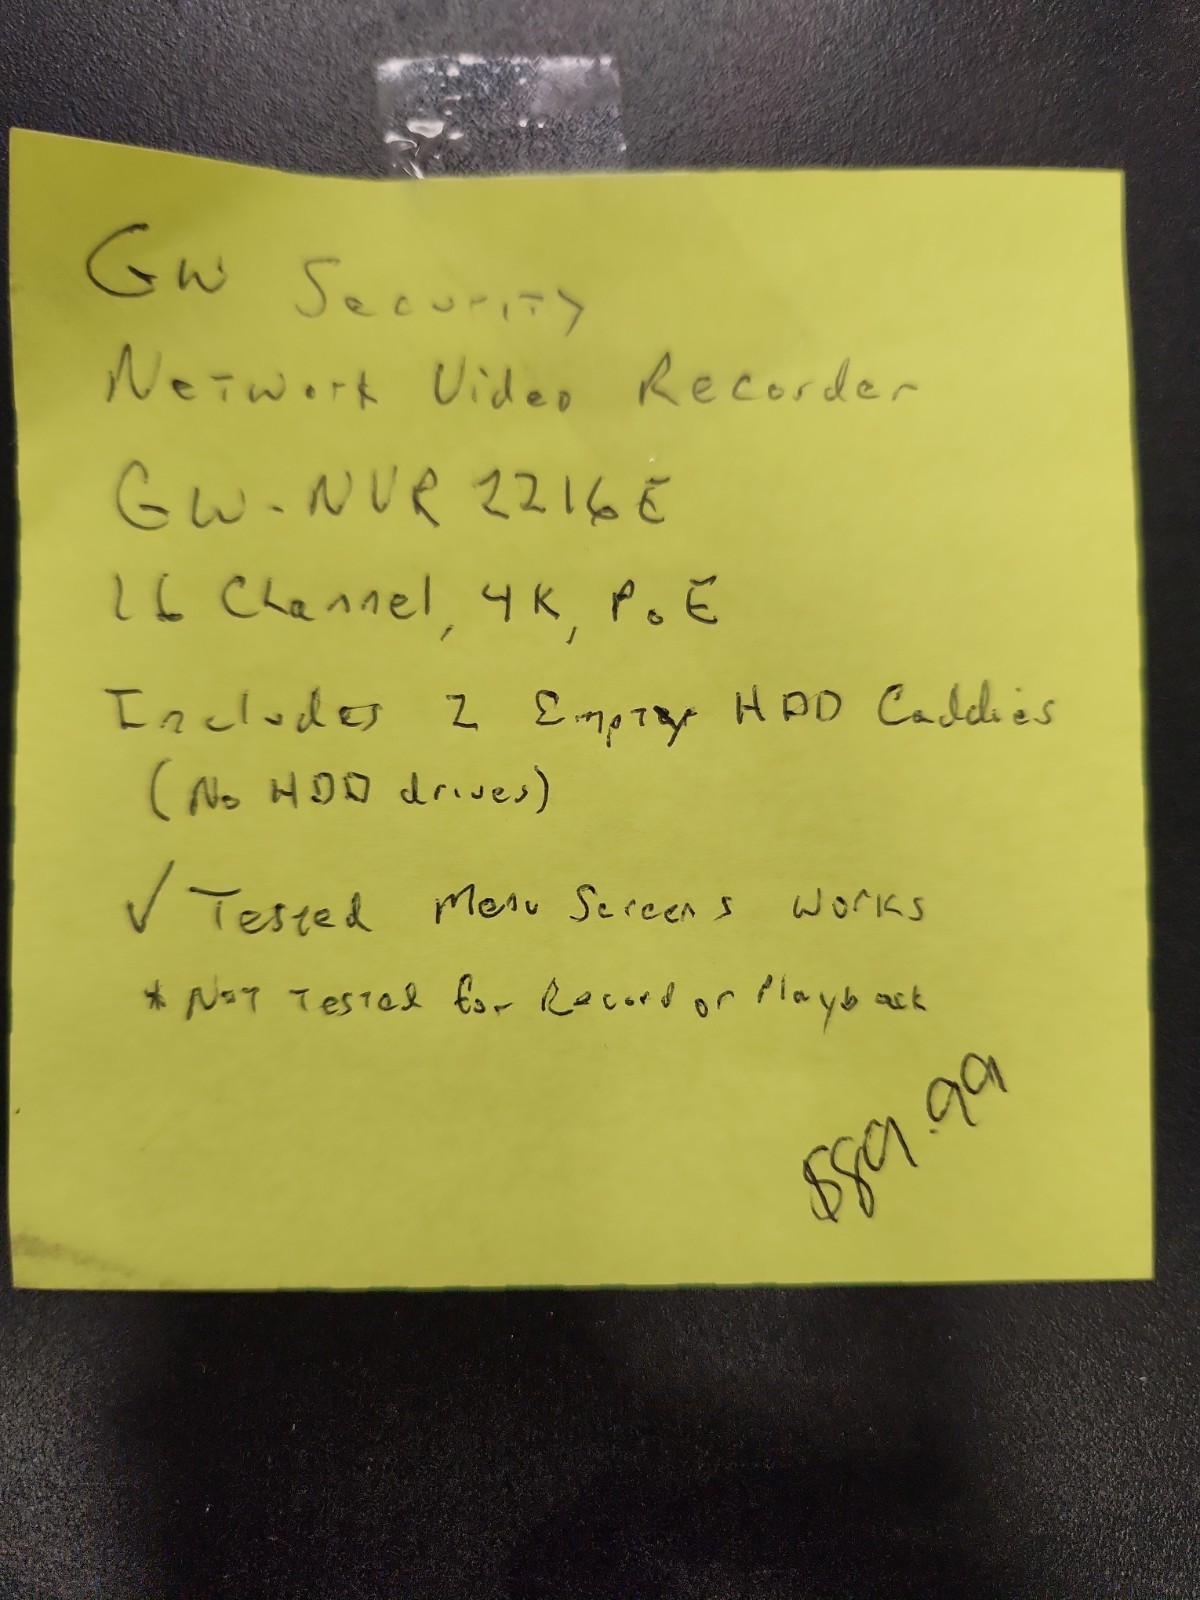 GW Security
Network Video Recorder
GW-NVR 2216E
16 Channel, 4K, PoE
Includes 2 Empty HDD Caddies
(No HDD drives)
✓ Tested Menu Screens works
* Not Tested for Record or Playback
$89.99